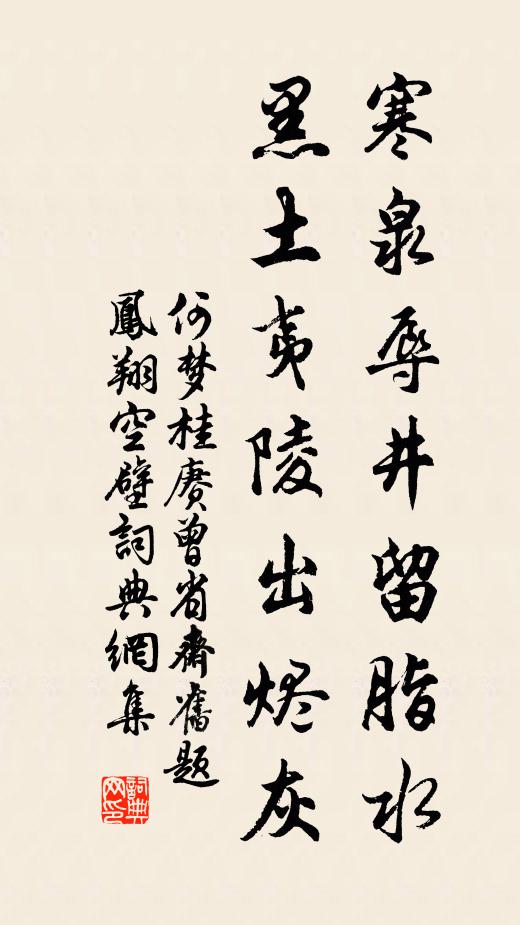 寒泉辱井留脂水
黑土夷陵出烬灰
何梦桂赓曾省齋舊题
鳳翔空壁詞典網集
詞典网印